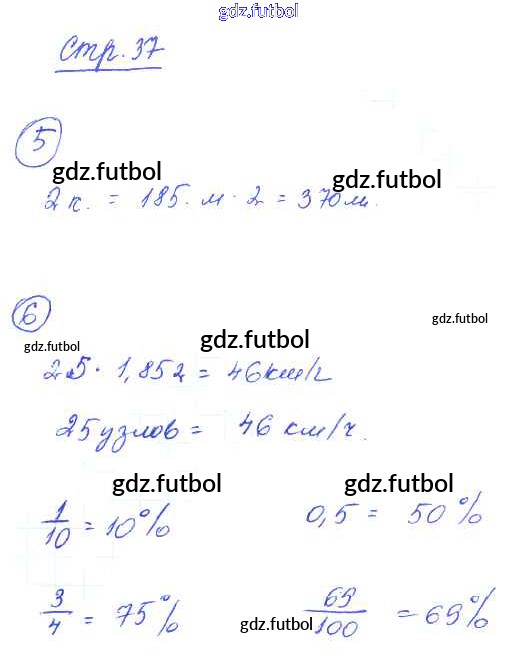 gdz.futbol
Стр. 37
5
gdz.futbol gdz.futbol
2 к. = 185. м · 2 = 370 м.
6
gdz.futbol
gdz.futbol gdz.futbol
25 · 1,852 = 46 км/ч
25 узлов = 46 км/ч.
gdz.futbol gdz.futbol
1/10 = 10% 0,5 = 50%
3/4 = 75% 69/100 = 69%
gdz.futbol gdz.futbol